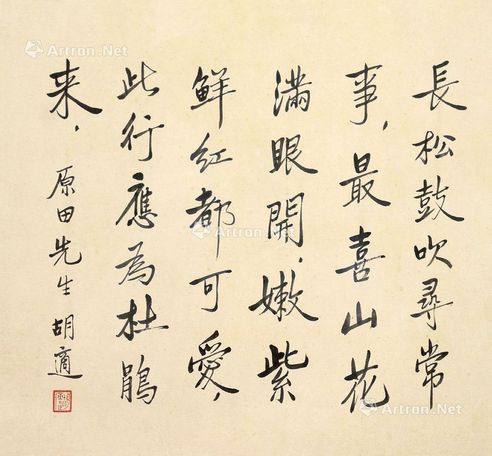 長松鼓吹尋常
事，最喜山花
滿眼開，嫩紫
鮮红都可愛，
此行應為杜鵑
来，
原田先生 胡適
Artron.Net
Artron.Net
Artron.Net
Artron.Net